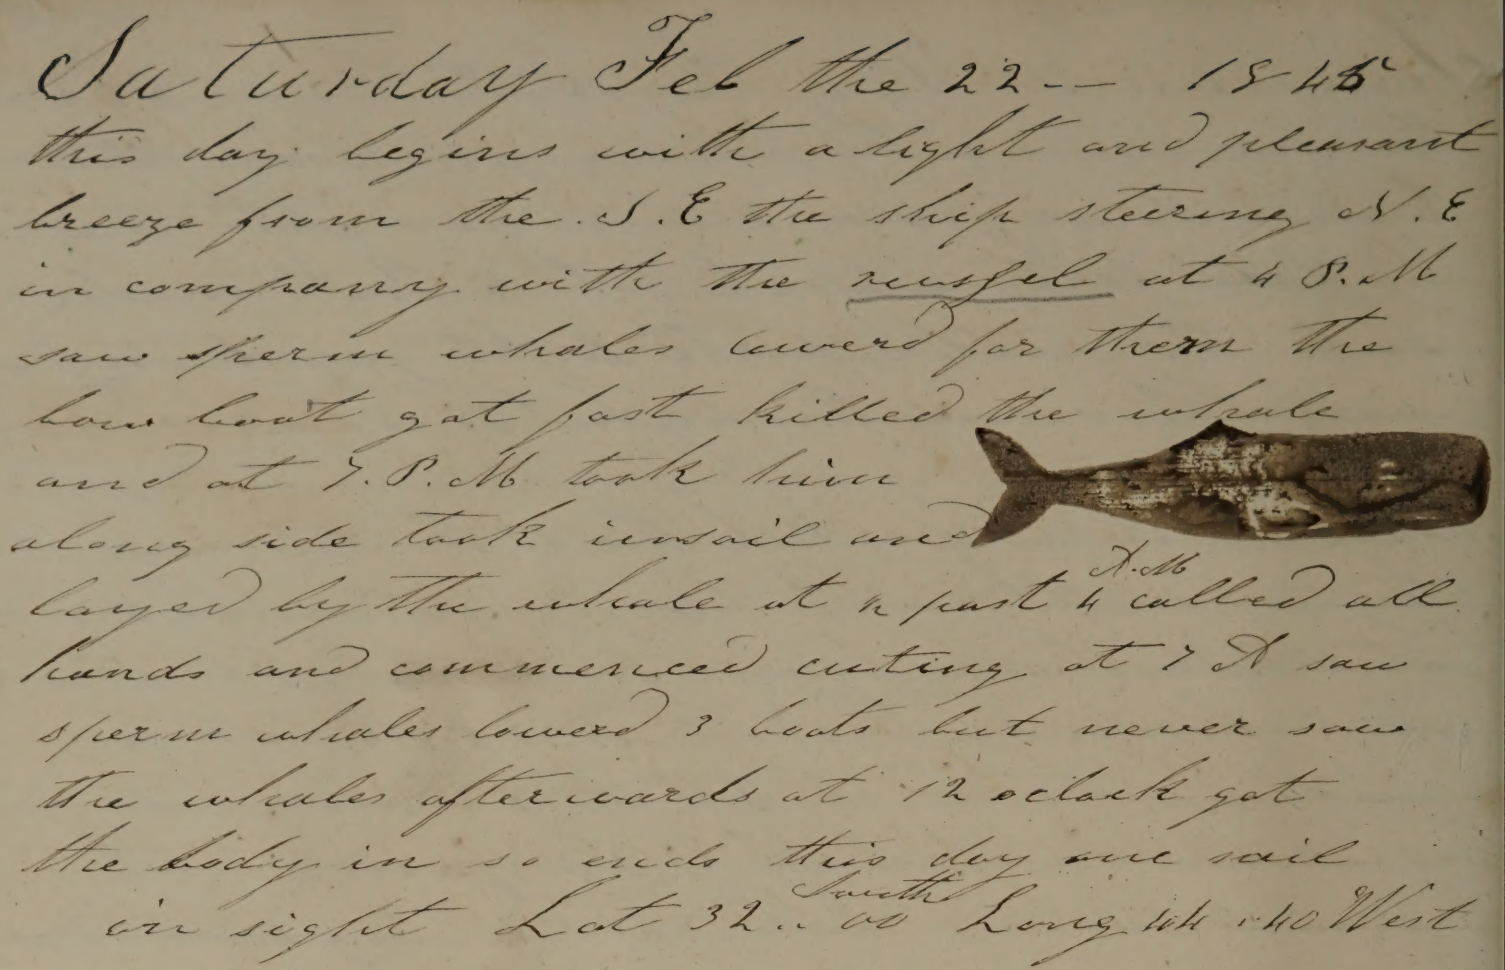 Saturday Feb the 22-- 1845
this day begins with a light and pleasant
breeze from the S.E the ship steering N.E
in company with the at 4 P.M
saw sperm whales lowerd for them the
bow boat got fast killed the whale
and at 7.P.M took him
along side took in sail and
layed by the whale at past 4 A.M called all
hands and commenced cuting at 7 A saw
sperm whales lowerd 3 boats but never saw
the whales afterwards at 12 oclock got
the body in so ends this day one sail
in sight Lat 32..00 South Long 44.40 West